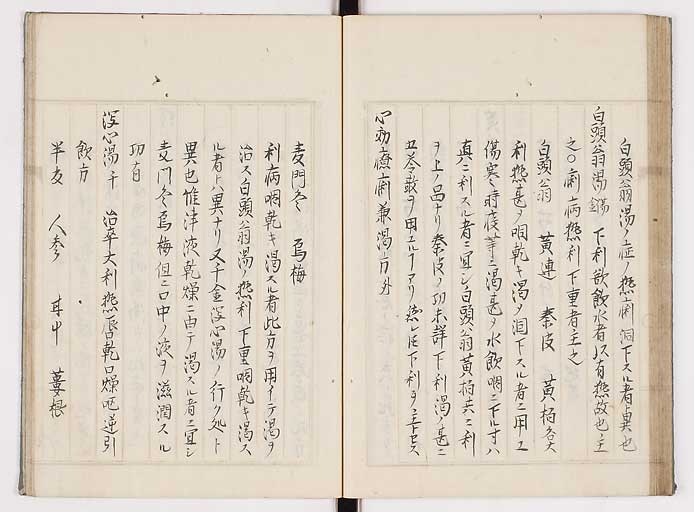 白頭翁湯ノ症ノ熱痢洞下スル者ト異也
白頭翁湯 下利欲飲水者以有熱故也主
之〇痢病熱利下重者主之
白頭翁 黄連 秦皮 黄栢各大
利熱甚ヲ咽乾キ渇ヲ洞下スル者ニ用ユ
傷寒時疫等ニ渇甚ヲ水飲咽ニ下ル寸ハ
真ニ利スル者ニ宜シ白頭翁黄栢共ニ利
ヲ上ノ品ナリ秦皮ノ功未詳下利渇ノ甚ニ
五苓散ヲ用ユルアリ然レ𪜈下利ヲ主トセス
心功療痢兼渇方 外
麦門冬 烏梅
利病咽乾キ渇スル者此方ヲ用イテ渇ヲ
治ス白頭翁湯ノ熱利下重咽乾キ渇ス
ル者ト異ナリ又千金瀉心湯ノ行ク処ト
異也惟津液乾燥ニ由テ渇スル者ニ宜シ
麦門冬烏梅但ニ口中ノ液ヲ滋潤スル
功有
瀉心湯千 治卒大利熱唇乾口燥嘔逆引
飲方
半夏 人参 甘中 蔞根